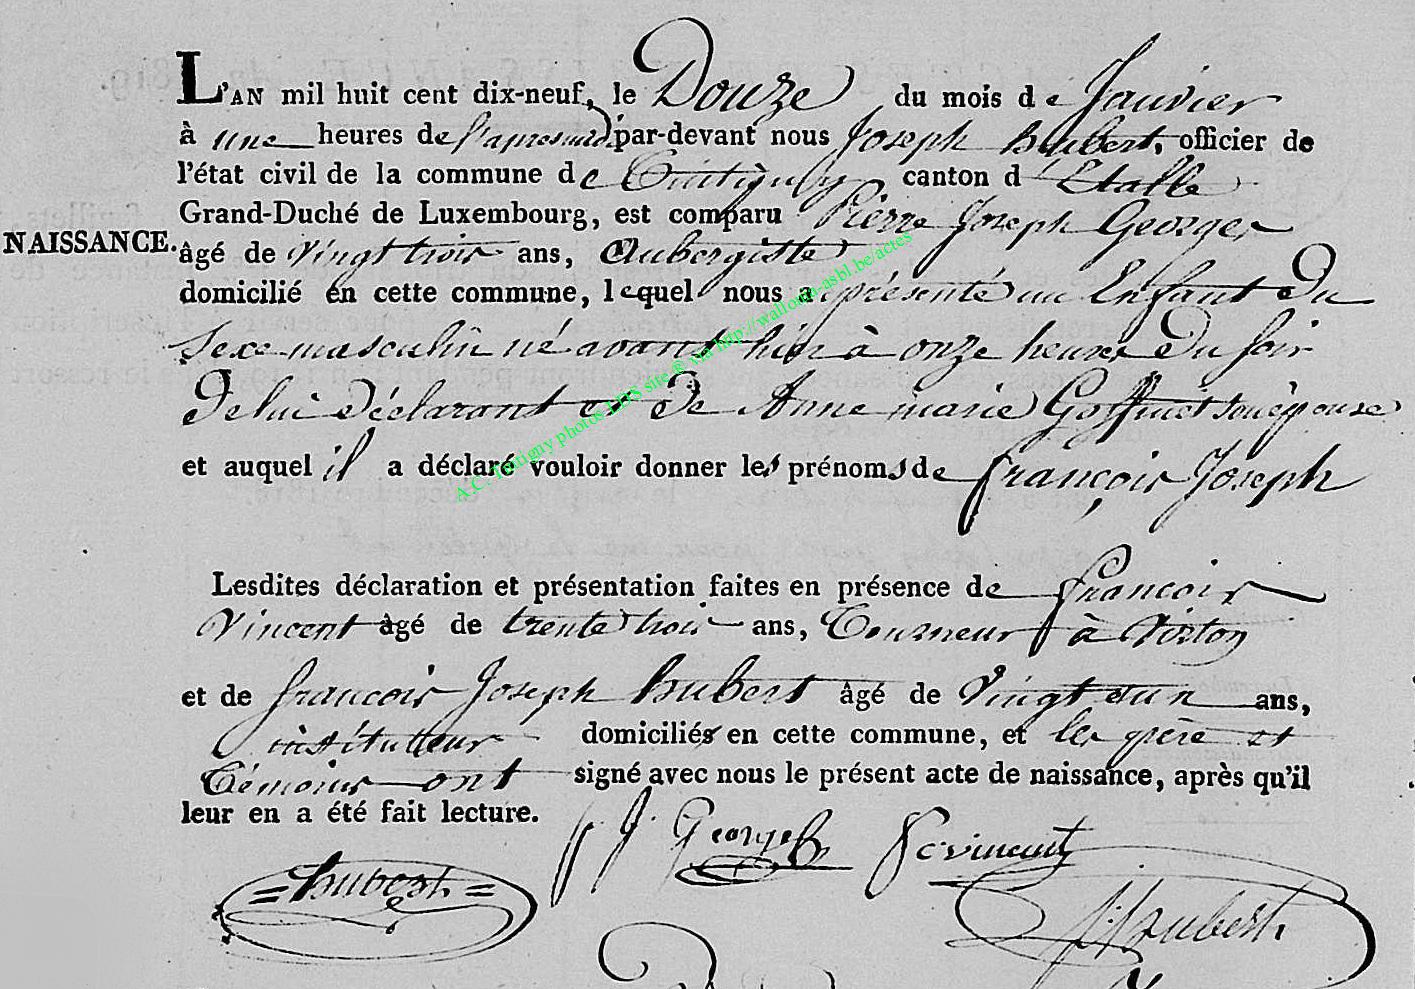 L'AN mil huit cent dix-neuf, le Douze du mois de Janvier
à une heures de l'apresmidi par-devant nous Joseph hubert, officier de
l'état civil de la commune de Tintigny canton d'Etalle
Grand-Duché de Luxembourg, est comparu Pierre Joseph Georges
NAISSANCE.
âgé de vingt trois ans, Aubergiste
domicilié en cette commune, lequel nous a présenté un Enfant du
Sexe masculin né avant hier à onze heures du soir
De lui Déclarant et De Anne marie Goffinet son épouse
et auquel il a déclaré vouloir donner les prénoms de françois Joseph
A.C. Tintigny photos LDS site © via http://wallonia-asbl.be/actes
Lesdites déclaration et présentation faites en présence de francois
Vincent âgé de trente trois ans, Tourneur à Virton
et de francois Joseph hubert âgé de Vingt et un ans,
instituteur domiciliés en cette commune, et les père et
Témoins ont signé avec nous le présent acte de naissance, après qu'il
leur en a été fait lecture.
p. J. Georges fs vincent
= hubert = J. hubert